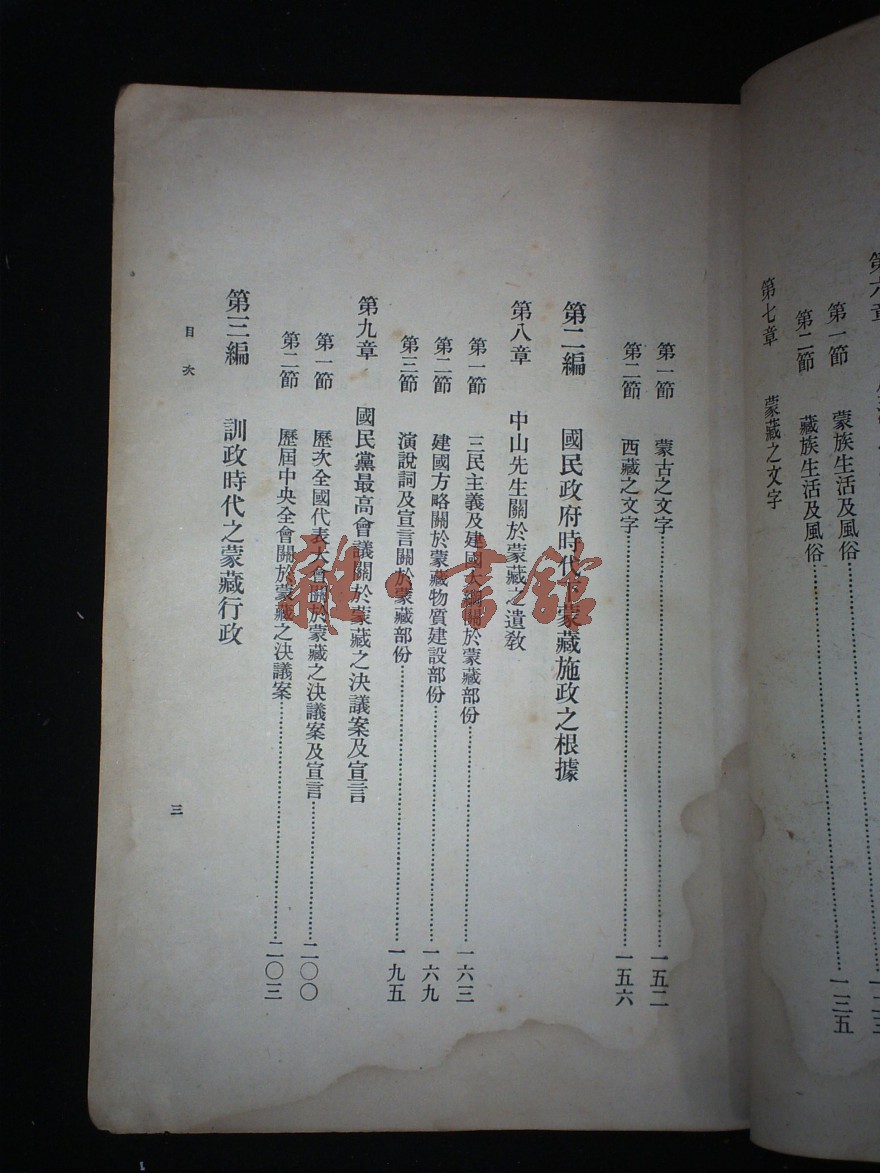 第六章
第一節 蒙族生活及風俗
第二節 藏族生活及風俗 一三五
第七章 蒙藏之文字
第一節 蒙古之文字 一五二
第二節 西藏之文字 一五六
第二編 國民政府時代下蒙藏施政之根據
第八章 中山先生關於蒙藏之遺教
第一節 三民主義及建國大綱關於蒙藏部份 一六三
第二節 建國方略關於蒙藏物質建設部份 一六九
第三節 演說詞及宣言關於蒙藏部份 一九五
第九章 國民黨最高會議關於蒙藏之決議案及宣言
第一節 歷次全國代表大會關於蒙藏之決議案及宣言 二〇〇
第二節 歷屆中央全會關於蒙藏之決議案 二〇三
第三編 訓政時代之蒙藏行政
目次
三
雜·書館